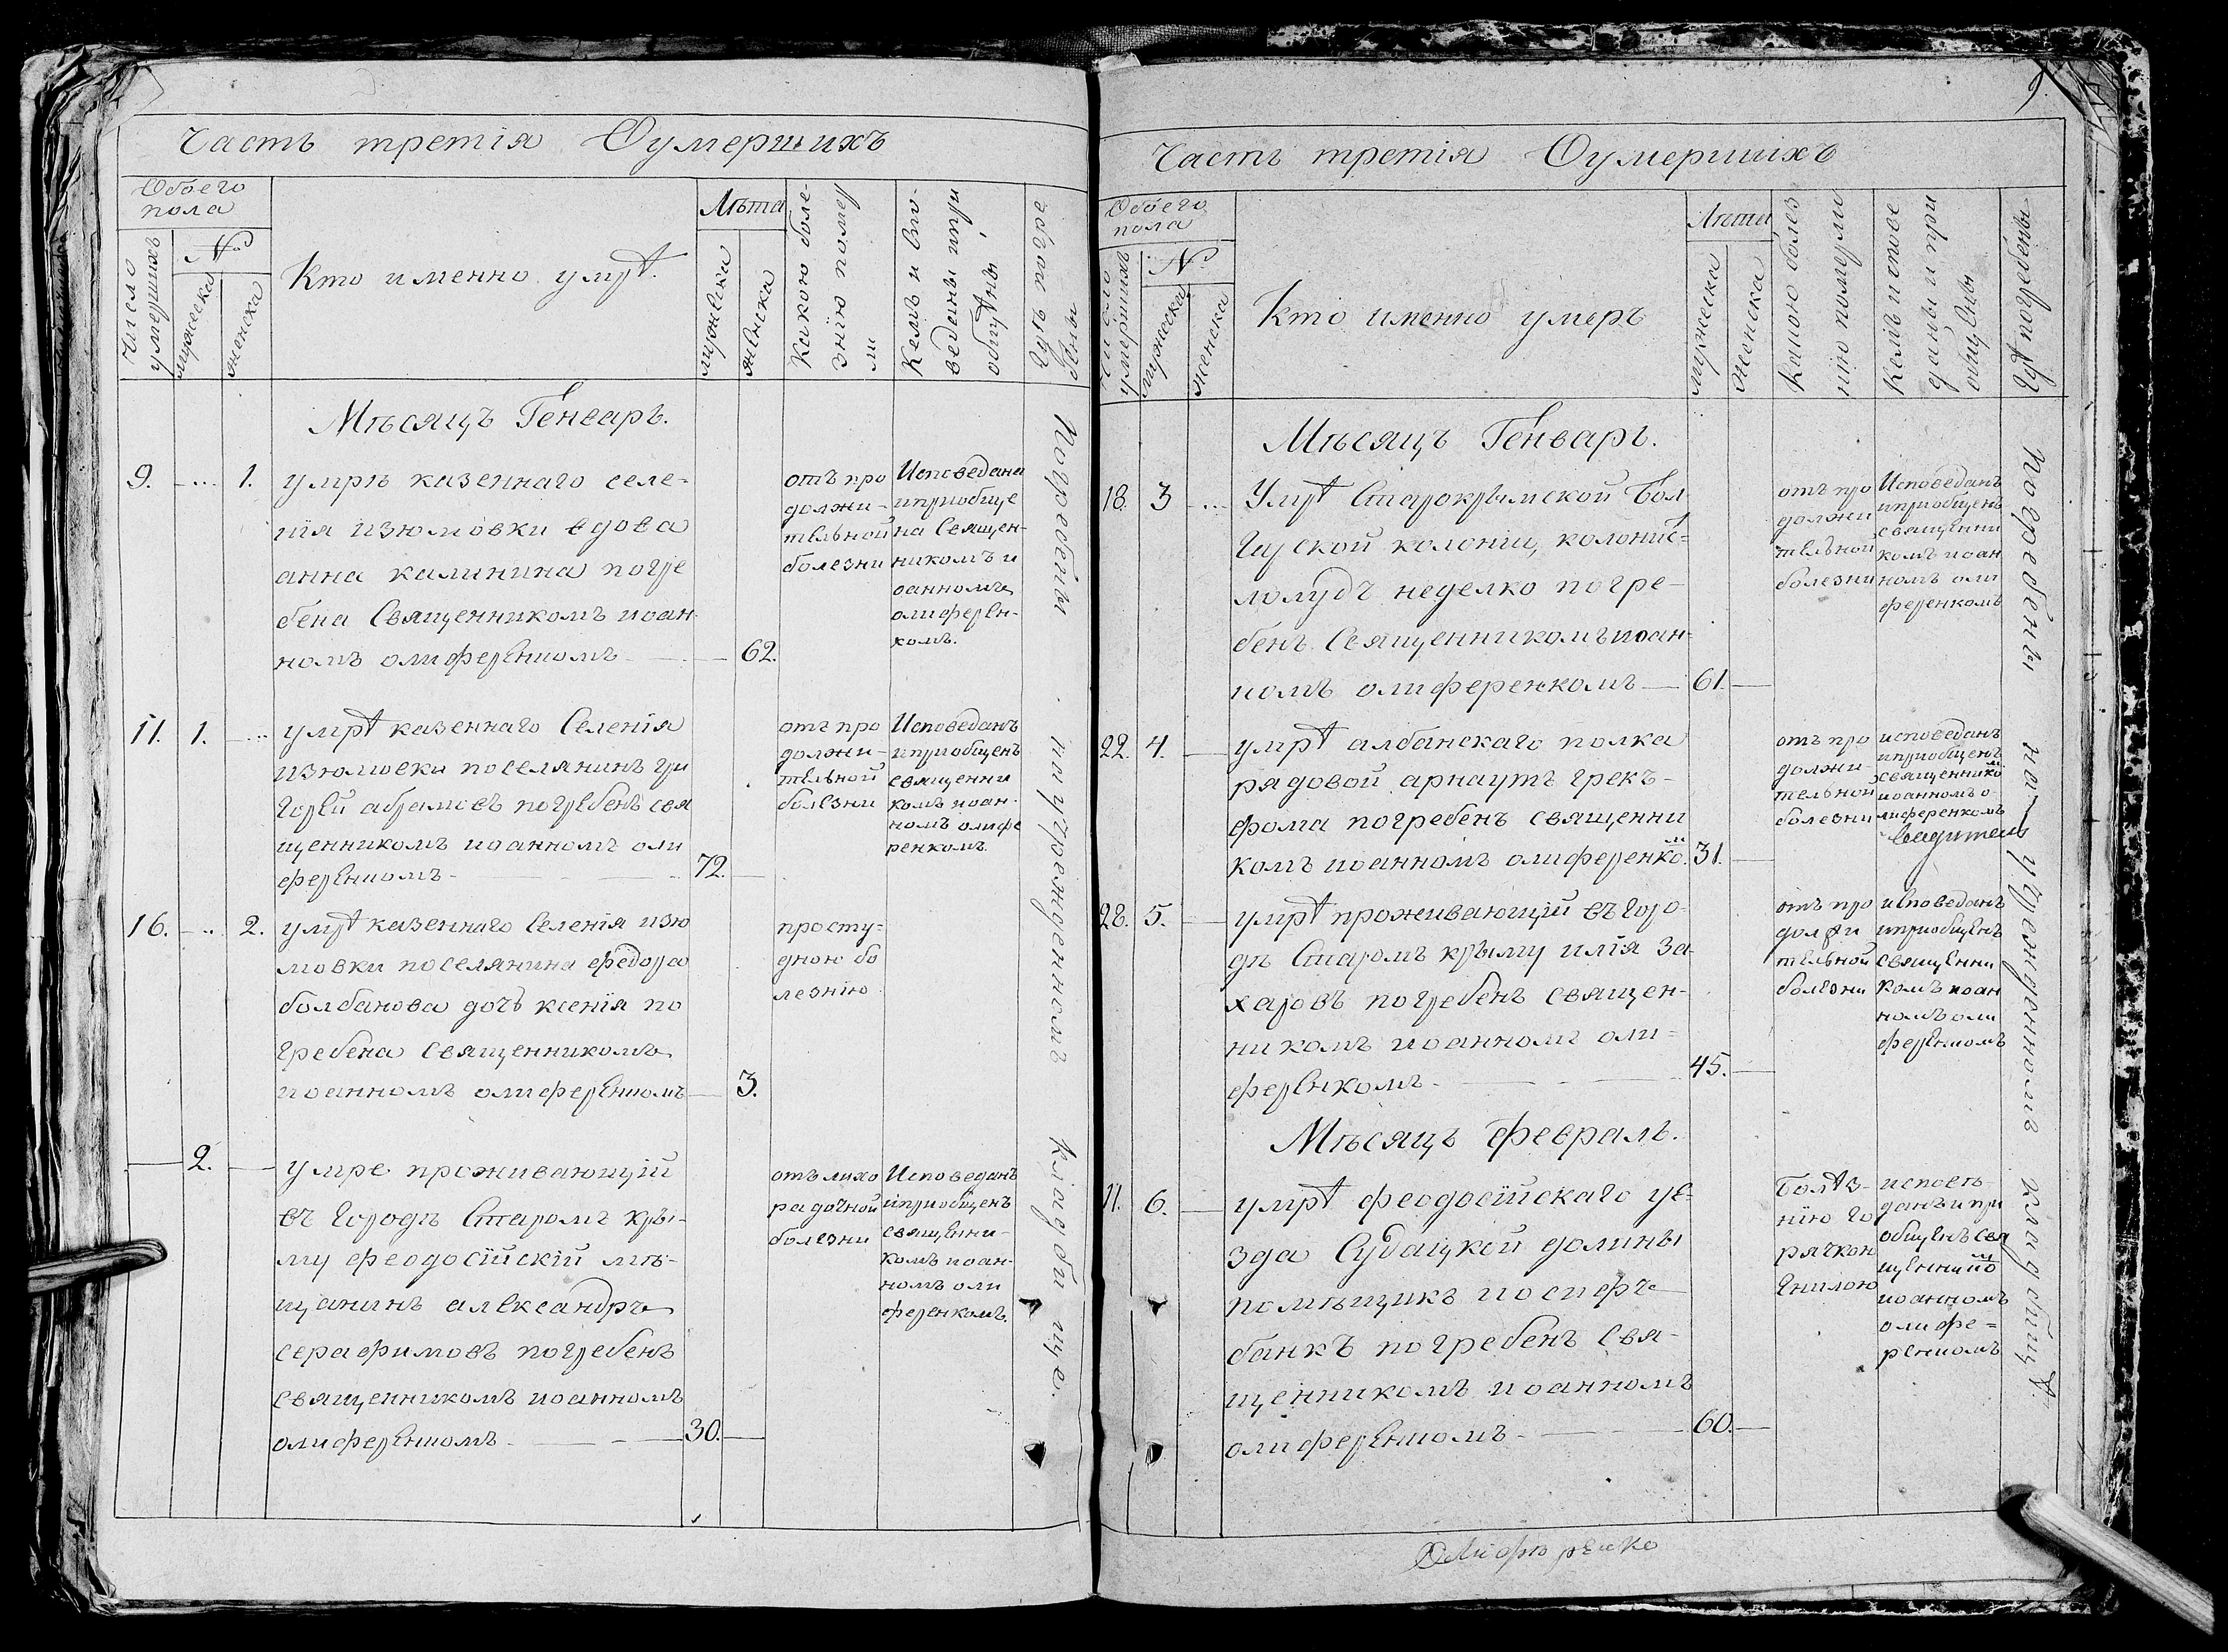 Часть третія Оумершихъ
Обоего
пола
Число
умершихъ
№
мужеска
женска
Кто именно умрѣ.
Лѣта
мужеска
женска
Какою боле-
знію помер
ли
Кемъ и
ведены и при
общѣны
гдѣ погребе
ны
Мѣсяцъ Генварь.
9. 1.
умрѣ казеннаго селе-
нія изюмовки вдова
анна калинина погре
бена Священникомъ иоан-
номъ олиференкомъ
62.
отъ про
должи-
тельной
болезни
Исповедана
и приобще
на Священ-
никомъ и
оанномъ
олиферен-
комъ.
11. 1.
умрѣ казеннаго Селенія
изюмовки поселянинъ гри
горей абрамовъ погребенъ свя
щенникомъ иоанномъ оли
ференкомъ
72.
отъ про
должи-
тельной
болезни
Исповеданъ
и приобщенъ
священни
комъ иоан-
номъ олифе
ренкомъ.
16. 2.
умрѣ казеннаго Селенія изю
мовки поселянина федора
болбанова дочь ксенія по
гребена священникомъ
иоанномъ олиференкомъ
3.
просту-
дною бо
лезнію
2.
умре проживающій
въ Городѣ Старомъ Кры-
му феодосійскій мѣ-
щанинъ александръ
серафимовъ погребенъ
священникомъ иоанномъ
олиференкомъ
30.
отъ лихо
радочной
болезни
Исповеданъ
и приобщенъ
священни-
комъ иоан-
номъ оли
ференкомъ.
Погребены на учрежденномъ кладбище.
9.
Часть третія Оумершихъ
Обоего
пола
Число
умершихъ
№
мужеска
женска
Кто именно умеръ
Лета
мужеска
женска
Какою болез
нію померли
Кемъ исповѣ
даны и при
общены
Гдѣ погребены
Мѣсяцъ Генварь.
18. 3
Умрѣ Старокрымской Бол
гарской колоніи, колонис-
недѣлко погре-
бенъ Священникомъ иоан-
номъ олиференкомъ
61.
отъ про
должи
тельной
болезни
Исповеданъ
и приобщенъ
священни
комъ иоан
номъ оли
ференкомъ
22. 4.
умрѣ албанскаго полка
рядовой арнаутъ грекъ
фома погребенъ священни
комъ иоанномъ олиференком.
31.
отъ про
должи-
тельной
болезни
исповеданъ
и приобщенъ
священником
иоанномъ о-
лиференкомъ
28. 5.
умрѣ проживающій въ горо-
дѣ Старомъ крыму илія За-
харовъ погребенъ священ-
никомъ иоанномъ оли-
ференкомъ
45.
отъ про
должи
тельной
болезни
исповеданъ
и приобщенъ
священни
комъ иоан
номъ оли
ференкомъ
Мѣсяцъ февраль.
11. 6.
умрѣ феодосійскаго уе-
зда Судацкой долины
помѣщикъ иосифъ
банкъ погребенъ свя-
щенникомъ иоанномъ
олиференкомъ
60.
Болѣз-
нію го
рячкон
исповѣ-
данъ и при
общенъ свя
щенником
иоанномъ
олифе-
ренкомъ
Погребены на учрежденномъ кладбищѣ.
Олифѣренко